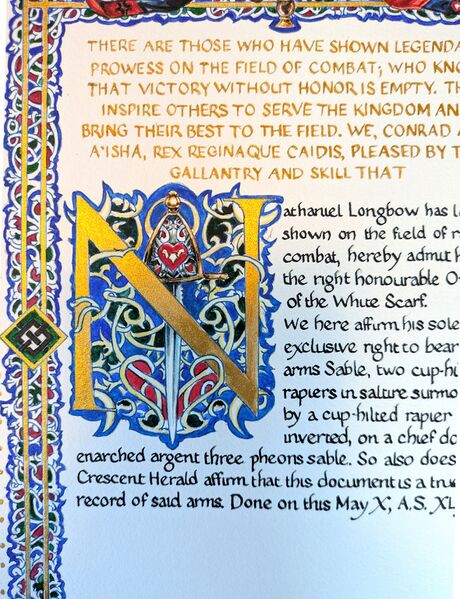 THERE ARE THOSE WHO HAVE SHOWN
PROWESS ON THE FIELD OF COMBAT; WHO
THAT VICTORY WITHOUT HONOR IS EMPTY.
INSPIRE OTHERS TO SERVE THE KINGDOM
BRING THEIR BEST TO THE FIELD. WE, CONRAD
A'ISHA, REX REGINAQUE CAIDIS, PLEASED BY
GALLANTRY AND SKILL THAT
Nathaniel Longbow has
shown on the field of
combat, hereby admit
the right honourable
of the White Scarf.
We here affirm his sole
exclusive right to bear
arms Sable, two
rapiers in saltire
by a cup-hilted rapier
inverted, on a chief
enarched argent three pheons sable. So also does
Crescent Herald affirm that this document is a true
record of said arms. Done on this May X, A.S.